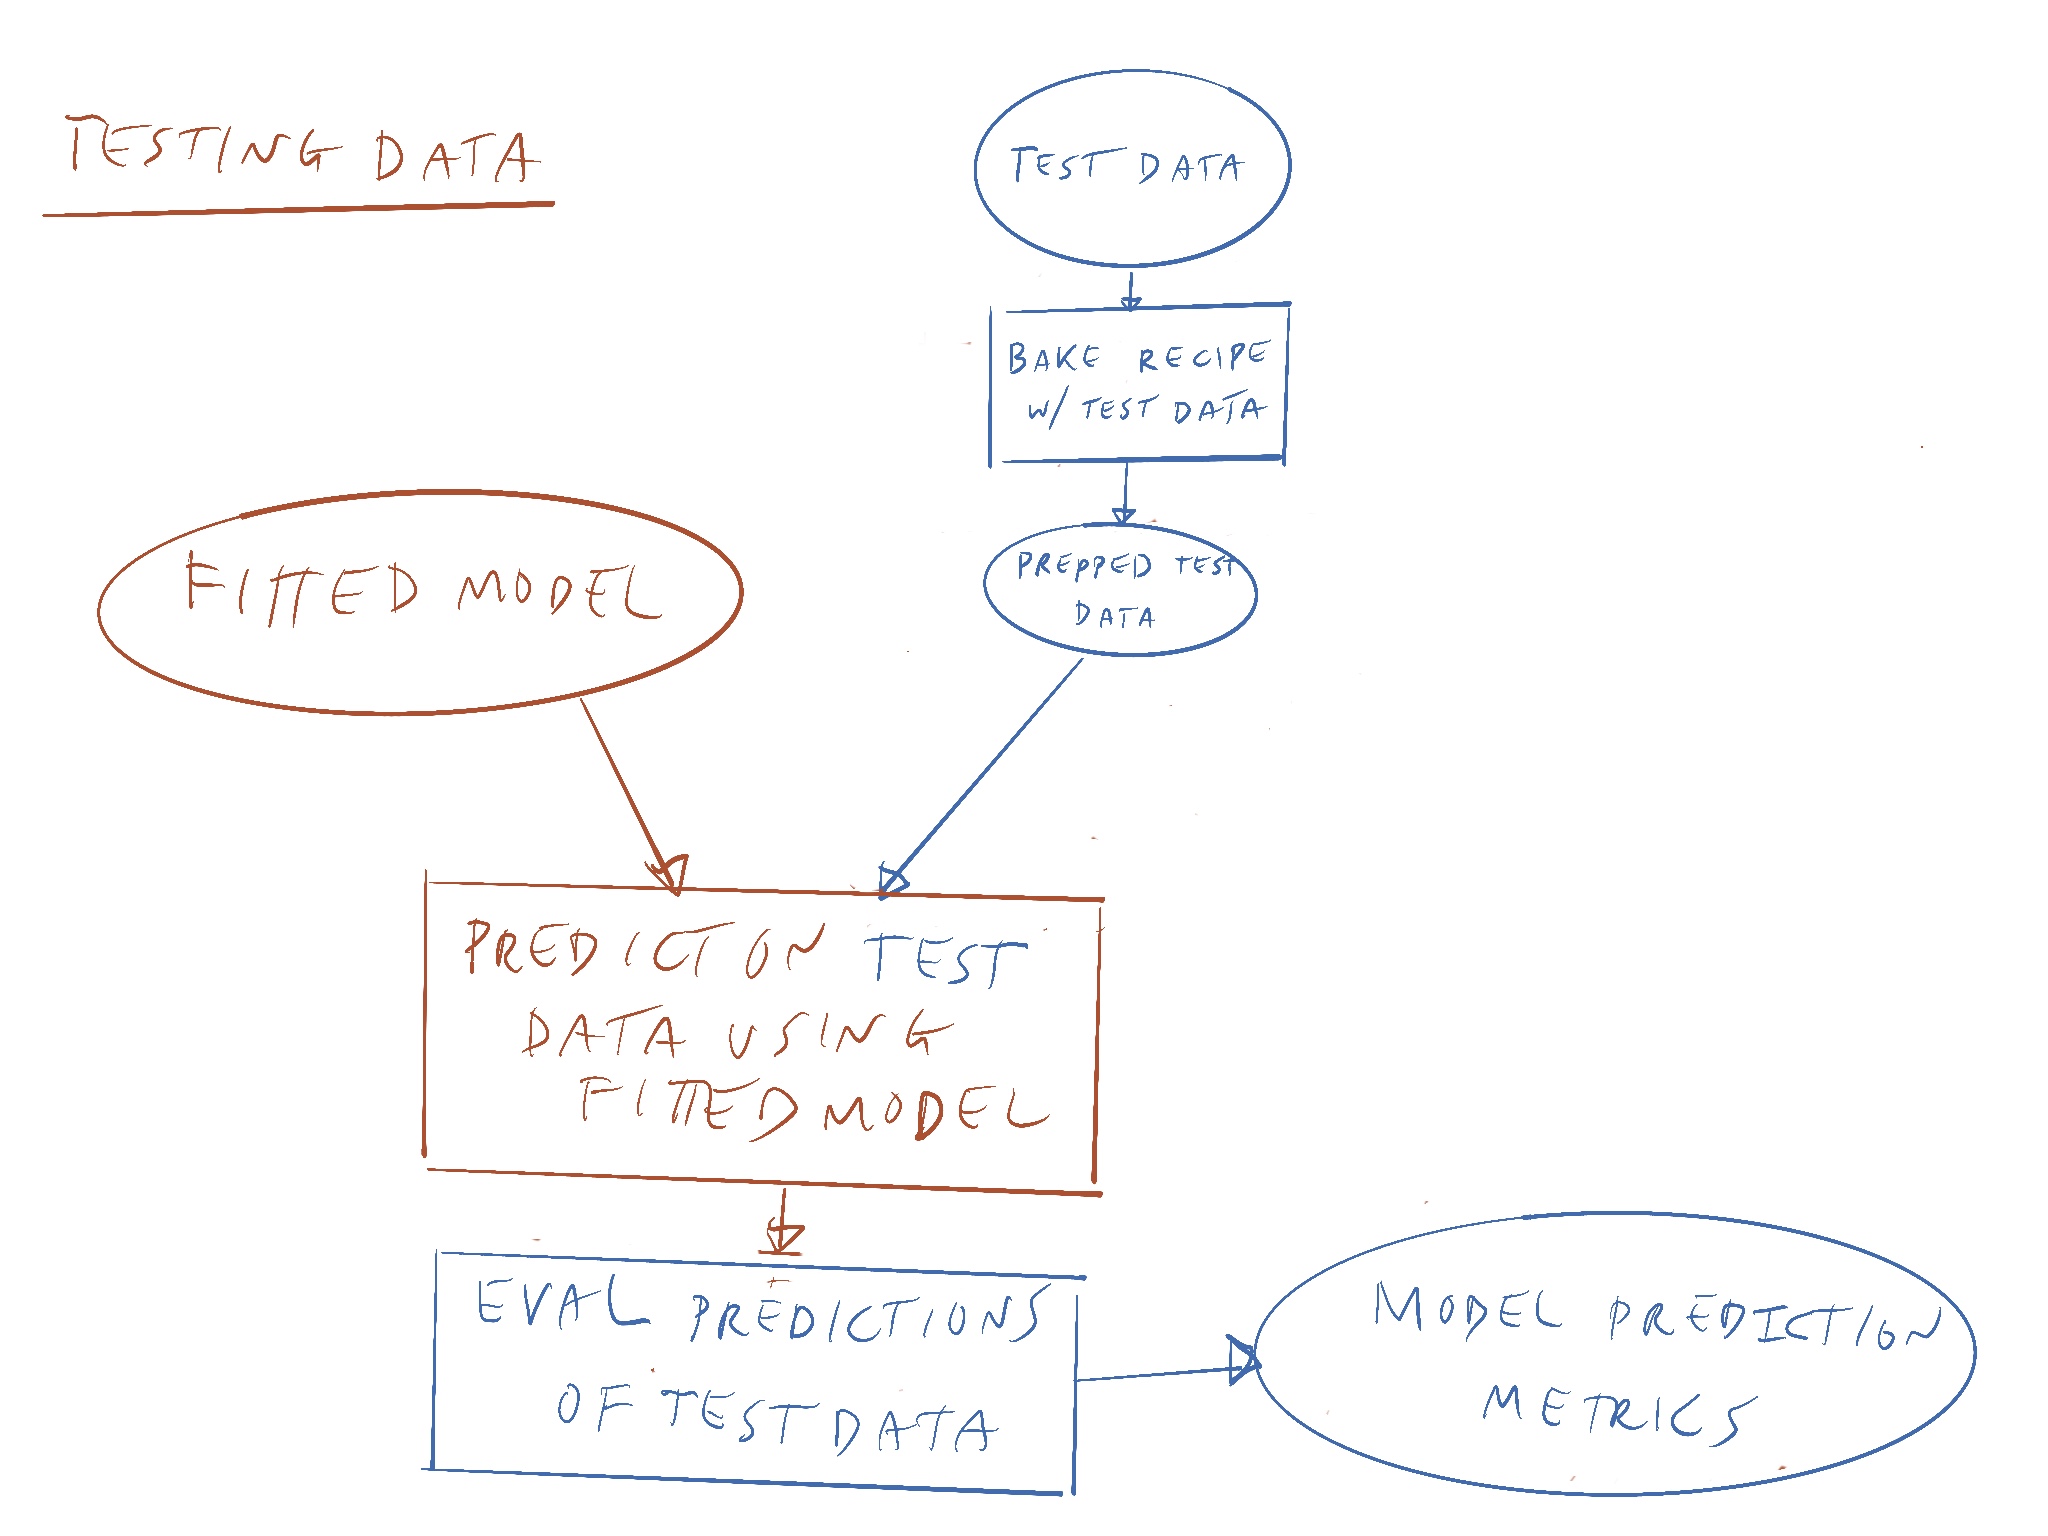 TESTING DATA
TEST DATA
BAKE RECIPE
W/ TEST DATA
PREPPED TEST
DATA
FITTED MODEL
PREDICTON TEST
DATA USING
FITTED MODEL
EVAL PREDICTIONS
OF TEST DATA
MODEL PREDICTION
METRICS